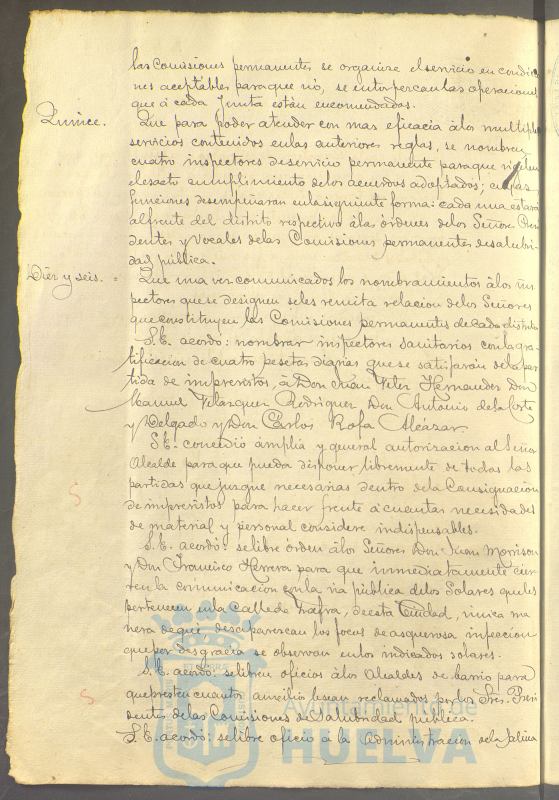 las Comisiones permanentes se organize el servicio en condicio
nes aceptables para que no, se entorpezcan las operaciones
que á cada Junta están encomendadas.
Quince. Que para poder atender con mas eficacia á los multiples
servicios contenidos en las anteriores reglas, se nombren
cuatro inspectores de servicio permanente para que vigilen
el exacto cumplimiento de los acuerdos adoptados; cuyas
funciones desempeñaran en la siguiente forma: cada una estará
al frente del distrito respectivo á las órdenes de los Señores Presi
dentes y Vocales de las Comisiones permanentes de salubri-
dad pública.
Diez y seis. = Que una vez comunicados los nombramientos á los ins
pectores que se designen se les remita relacion de los Señores
que constituyen las Comisiones permanentes de cada distrito
S.E. acordó: nombrar inspectores sanitarios con la gra-
tificacion de cuatro pesetas diarias que se satisfarán de la par
tida de imprevistos, á Don Juan Hernandez Don
Manuel Velazquez Rodriguez Don Antonio de la Corte
y Delgado y Don Cárlos Rofa Alcázar.
S.E. concedió ámplia y general autorizacion al Señor
Alcalde para que pueda disponer libremente de todas las
partidas que juzgue necesarias dentro de la Consignacion
de imprevistos para hacer frente á cuantas necesidades
de material y personal considere indispensables.
S.E. acordó: se libre órden á los Señores Don Juan Morrison
y Don Francisco Herrera para que inmediatamente cier
ren la comunicacion con la via pública de los Solares que les
pertenecen en la Calle de Zafra, de esta Ciudad, unica ma
nera de que desaparezcan los focos de asquerosa infeccion
que por desgracia se observan en los indicados solares.
S.E. acordó: se libren oficios á los Alcaldes de barrio para
que presten cuantos auxilios les sean reclamados por los Sres. Presi
dentes de las Comisiones de Salubridad pública.
S.E. acordó: se libre oficio á la Administracion de la Salina
Ayuntamiento de
HUELVA